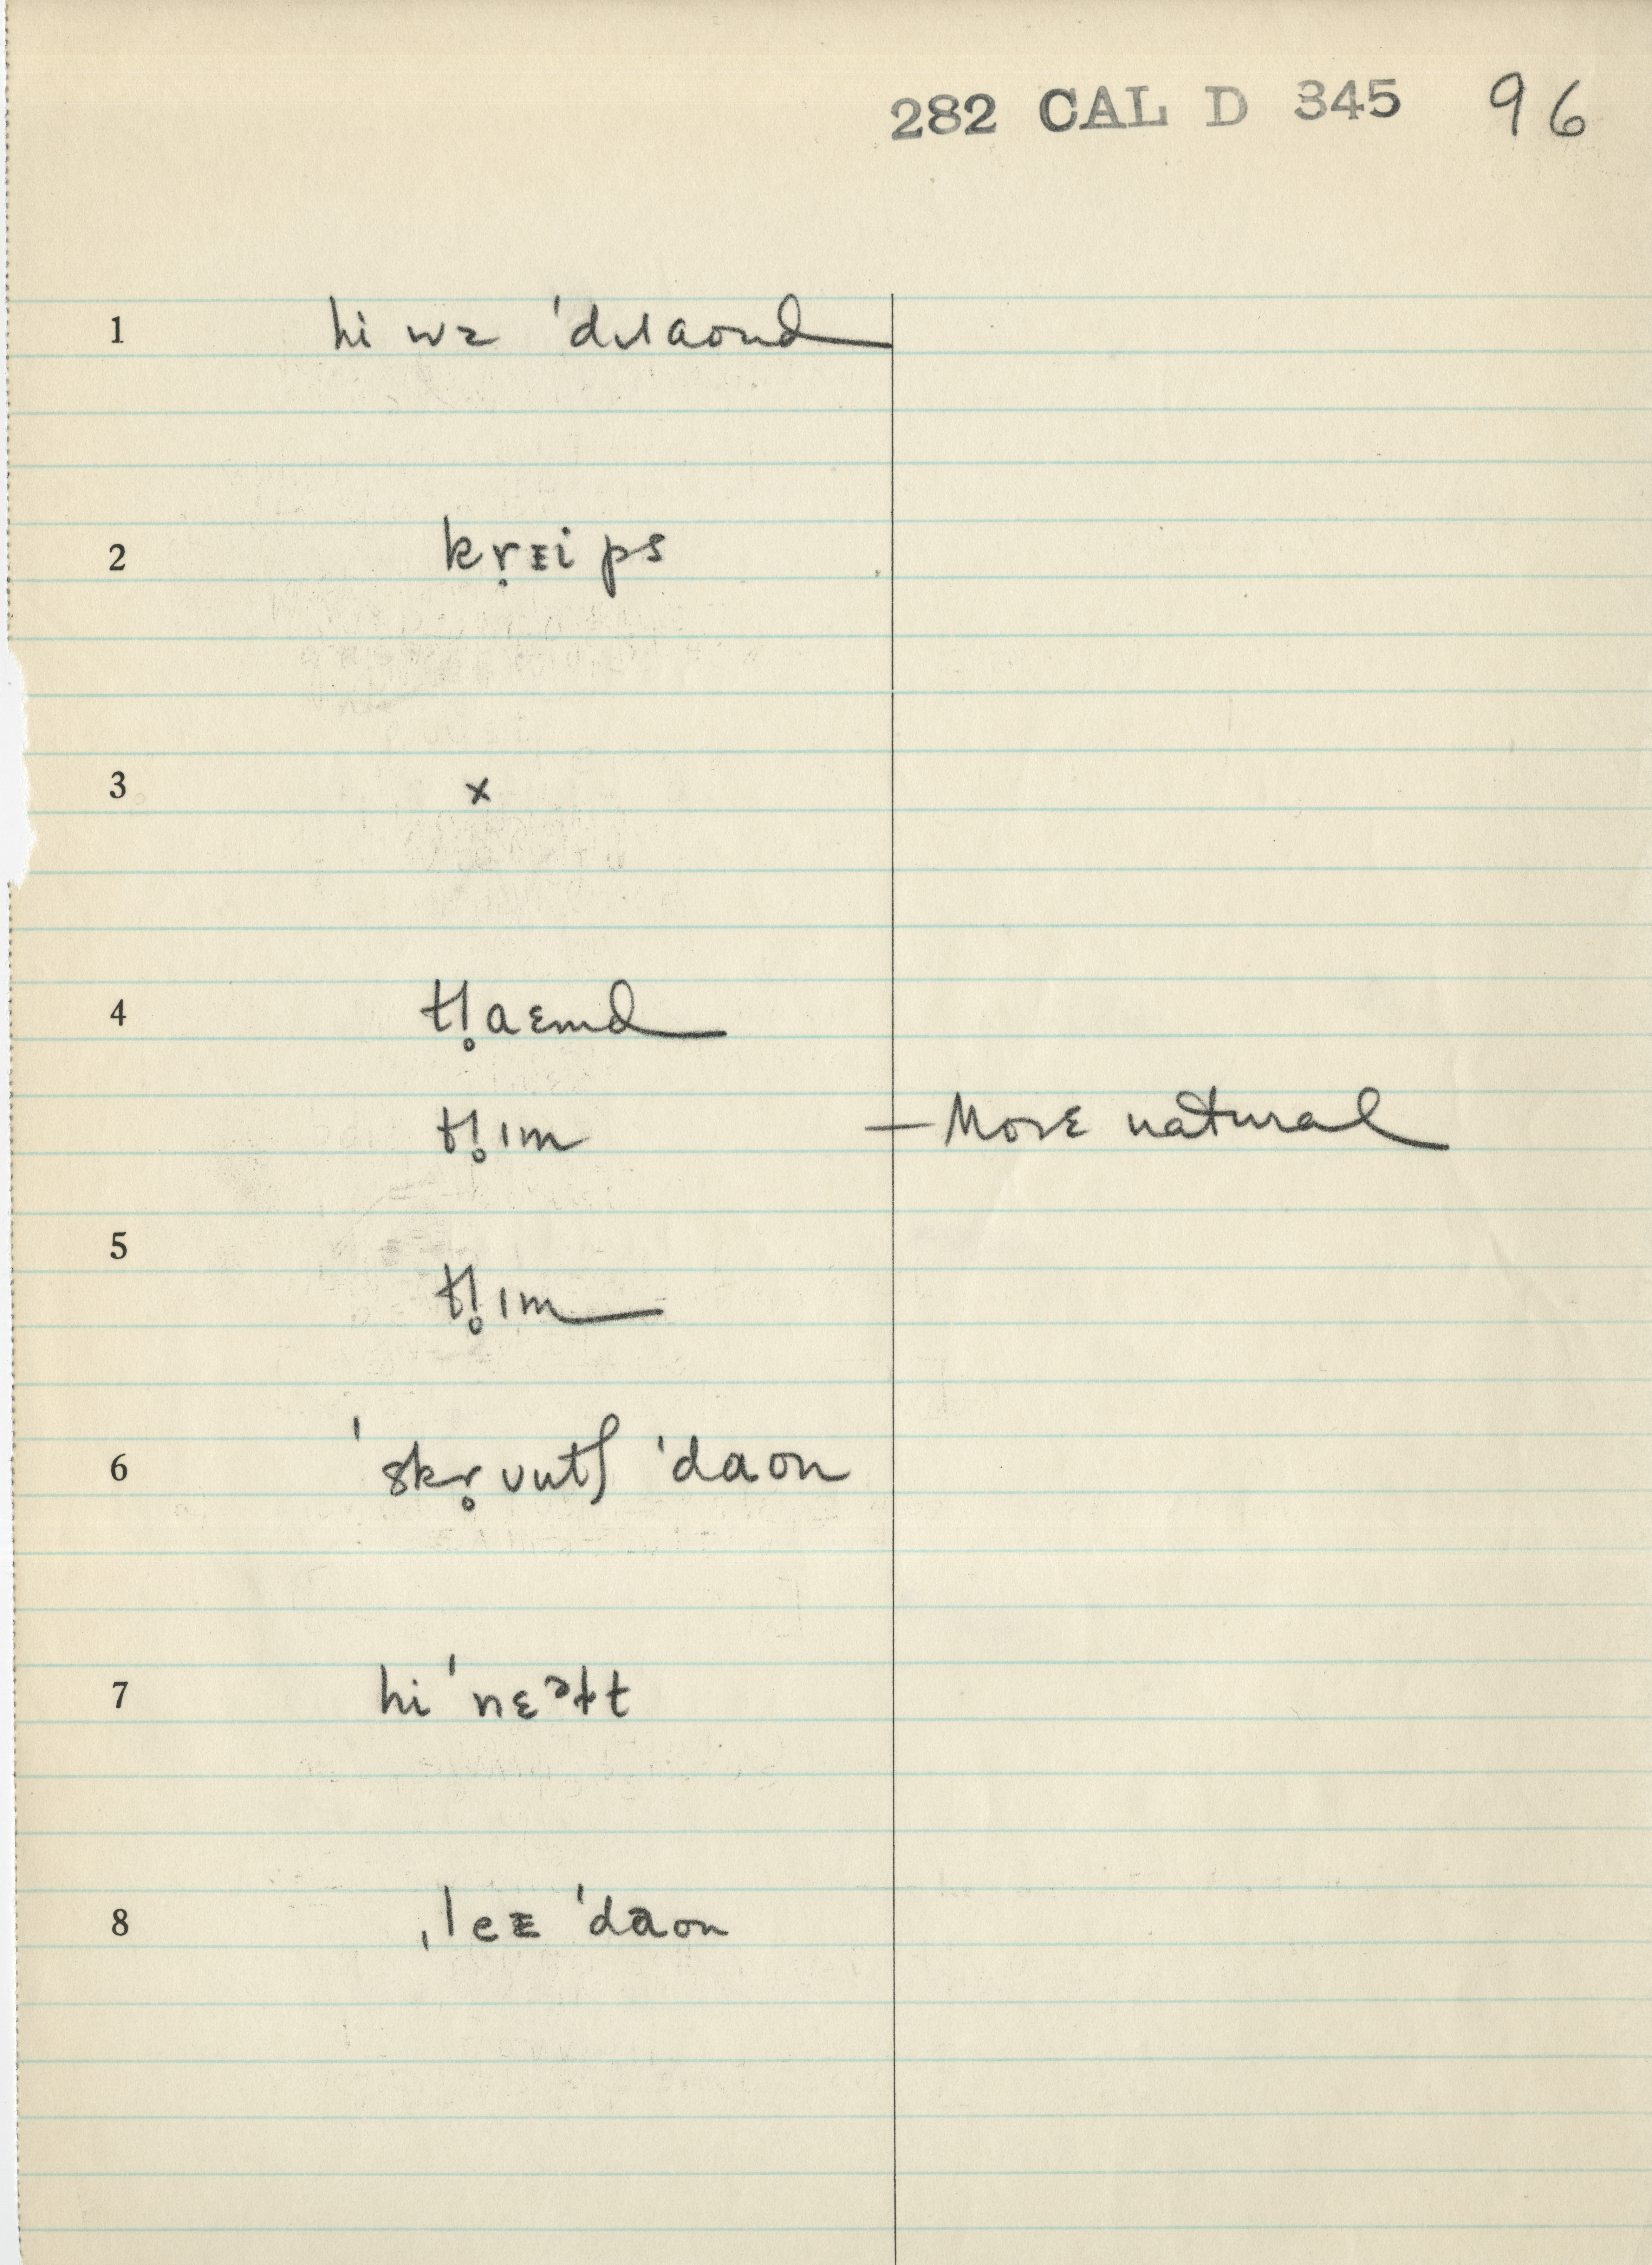 282 CAL D 345 96
1 hi wz ˈdɹaond
2 kr̥ᴇi ps
3 x
4 tl̥aɛmd
tl̥ɪm — More natural
5
tl̥ɪm
6 ˈskr̥ʋntʃ ˈdaon
7 hi ˈnɛᵊɫt
8 ˌleᴇ ˈdaon